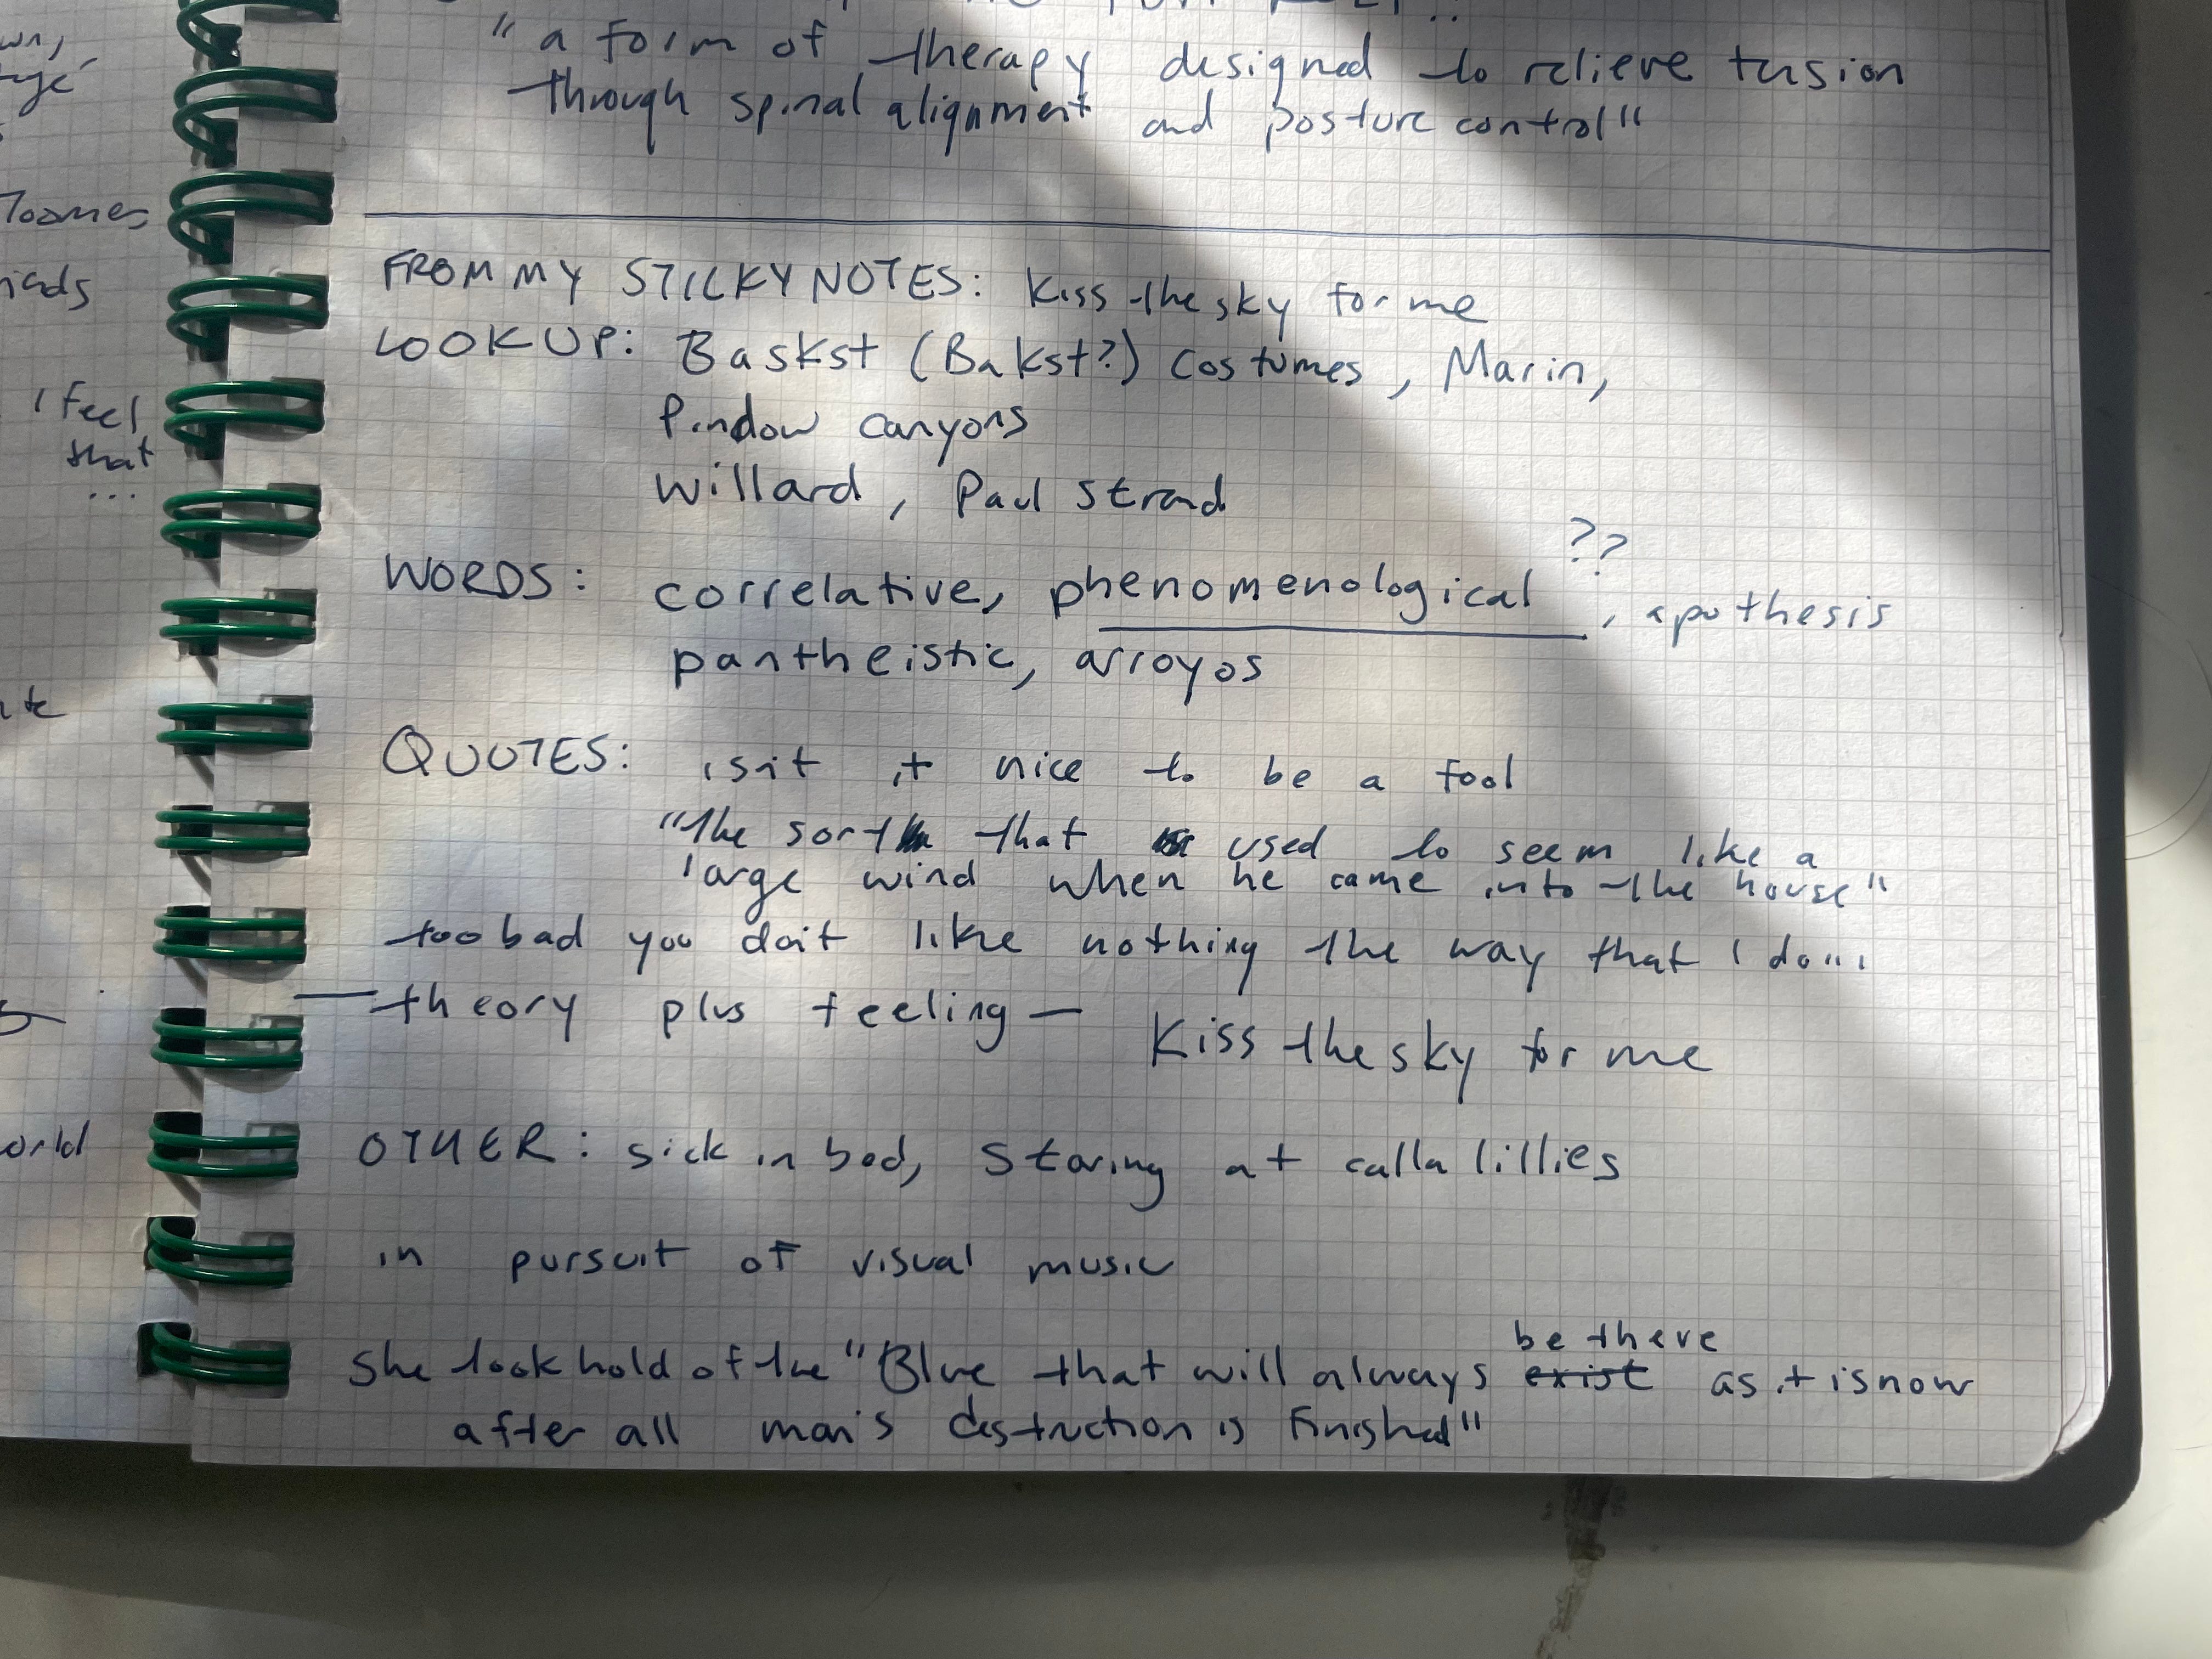 "a form of therapy designed to relieve tension
through spinal alignment and posture control"
FROM MY STICKY NOTES: Kiss the sky for me
LOOK UP: Baskst (Bakst?) costumes, Marin,
canyons
Willard, Paul Strand
??
WORDS: correlative, phenomenological, apothesis
pantheistic, arroyos
QUOTES: isn't it nice to be a fool
"the sort that used to seem like a
large wind when he came into the house"
too bad you don't like nothing the way that I do...
— theory plus feeling — Kiss the sky for me
OTHER: sick in bed, staring at calla lillies
in pursuit of visual music
be there
She took hold of the "Blue that will always exist as it is now
after all man's destruction is finished"
I feel
that
...